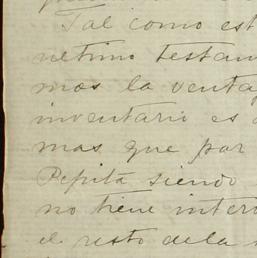 Tal como est
ultimo testam
mos la venta
inventario es
mas que por
Pepita siendo
no tiene inter
el resto dela